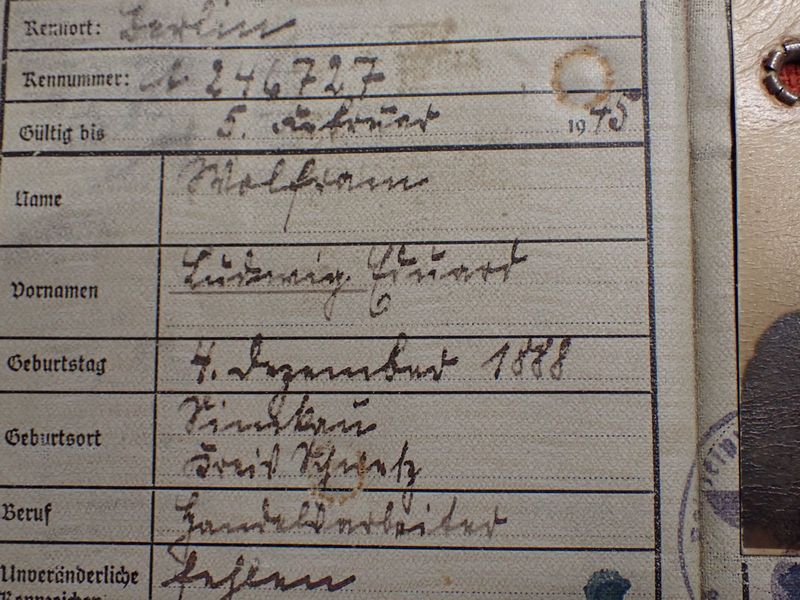 Kennort: Berlin
Kennummer: A 246727
Gültig bis 5. Februar 1945
Name Wolfram
Vornamen Ludwig Eduard
Geburtstag 4. Dezember 1888
Geburtsort
Kreis Schwetz
Beruf Handelsarbeiter
Unveränderliche fehlen
Kennzeichen